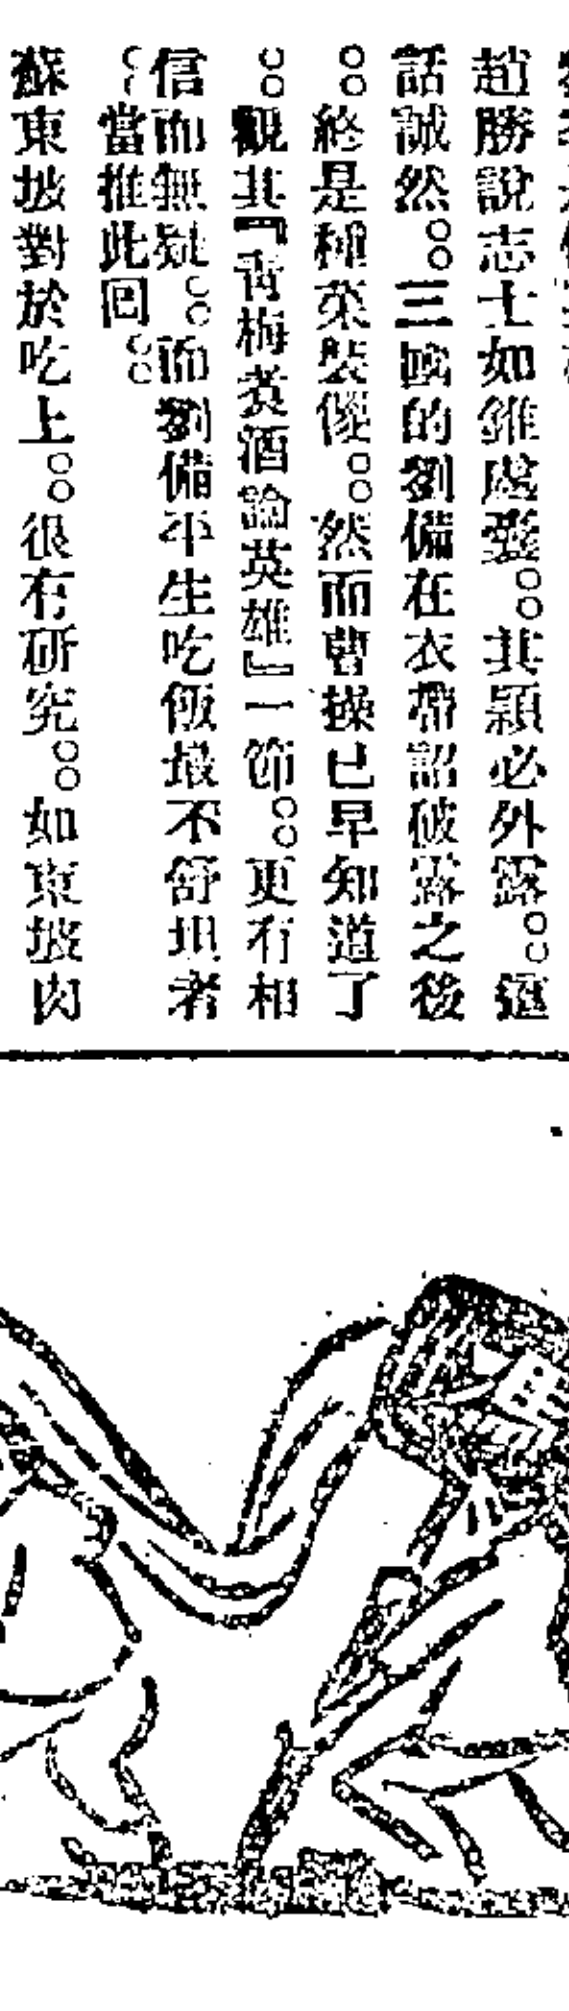 趙勝說志士如錐處囊。。其穎必外露。。這
話誠然。。三國的劉備在衣帶詔破露之後
。。終是種菜裝傻。。然而曹操已早知道了
。。觀其『青梅煮酒論英雄』一節。。更有相
信而無疑。。而劉備平生吃飯最不舒坦者
。。當推此回。。
蘇東坡對於吃上。。很有研究。。如東坡肉